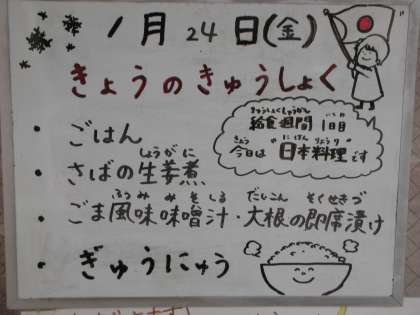 1月24日(金)
きょうのきゅうしょく
きゅうしょくしゅうかん いちにち
給食週間 1日目
きょう にほんりょうり
今日は"日本料理"です
・ごはん
しょうがに
・さばの生姜煮
ふうみ みそしる だいこん そくせきづ
・ごま風味味噌汁・大根の即席漬け
・ぎゅうにゅう